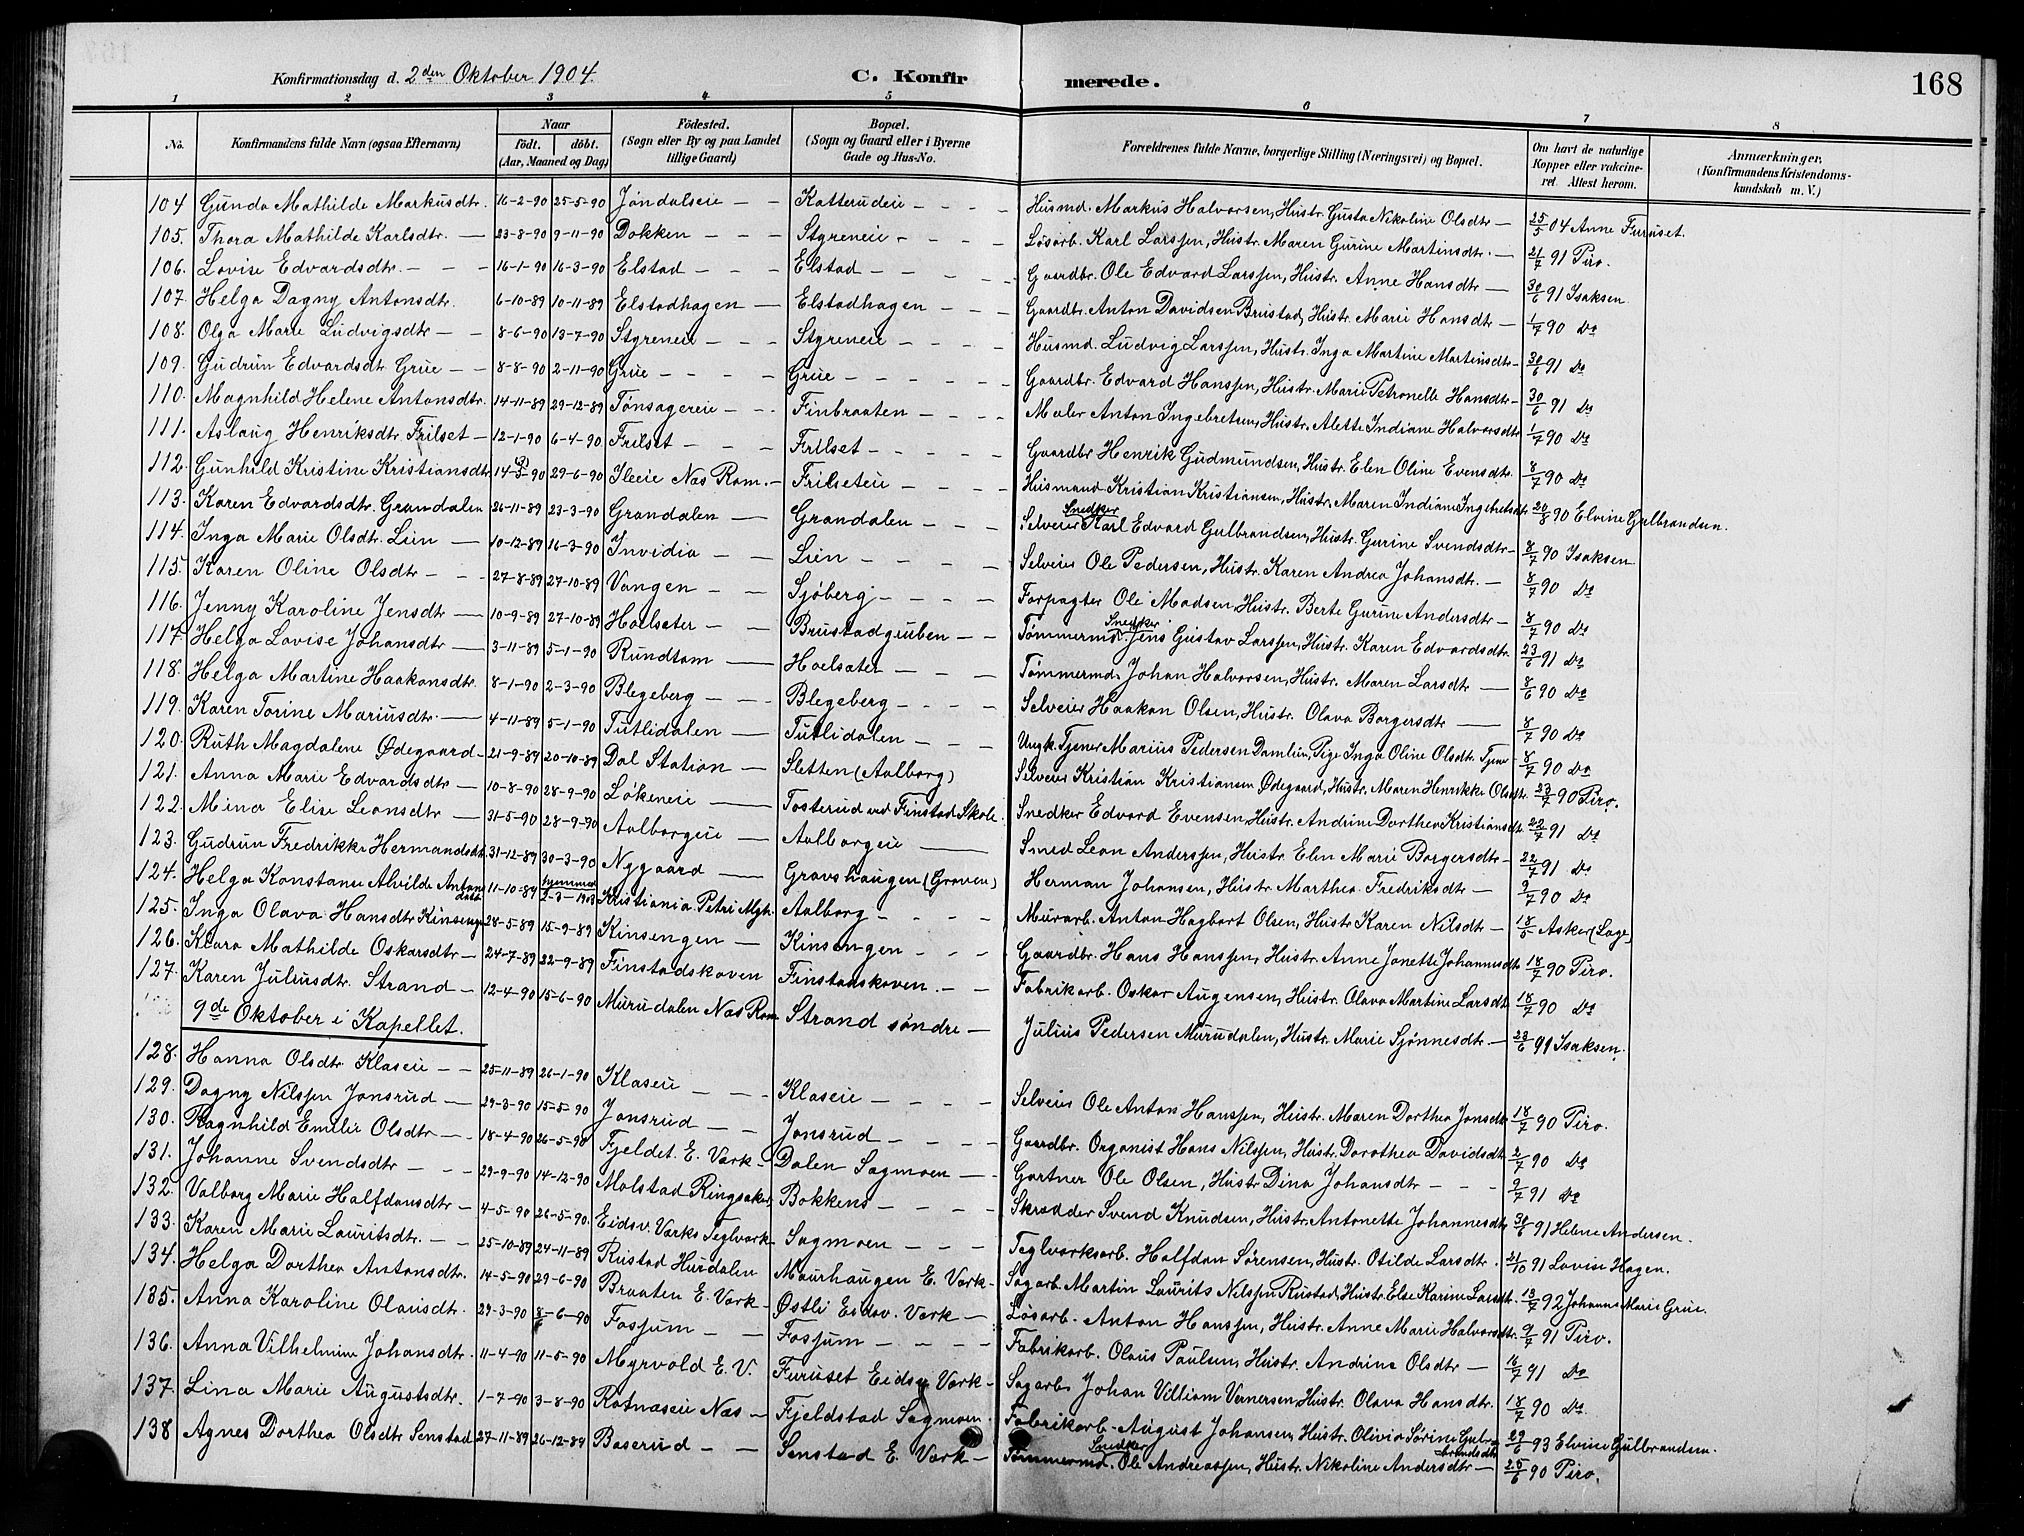 Konfirmationsdag d. 2den Oktober 1904. C. Konfirmerede. 168
1 2 3 4 5 6 7 8
No. Konfirmandens fulde Navn (ogsaa Efternavn) Naar født. døbt. (Aar, Maaned og Dag) Fødested. (Sogn eller By og paa Landet tillige Gaard) Bopæl. (Sogn og Gaard eller i Byerne Gade og Hus-No. Forældrenes fulde Navne, borgerlige Stilling (Næringsvei) og Bopæl. Om havt de naturlige Kopper eller vakcineret. Attest herom. Anmærkninger. (Konfirmandens Kristendomskundskab m. V.)
104 Gunda Mathilde Markusdtr. 16-2-90 25-5-90 Jøndalseie Katterudeie Husmd. Markus Halvorsen, Hustr. Gusta Nikoline Olsdtr 25/5 04 Anne Furuset.
105. Thora Mathilde Karlsdtr. 23-8-90 9-11-90 Dokken Styreneie Løsarb. Karl Larssen, Hustr. Maren Gurine Martinsdtr. 21/7 91 Piro.
106. Lovise Edvardsdtr. 16-1-90 16-3-90 Elstad Elstad Gaardbr. Ole Edvard Larssen, Hustr. Anne Hansdtr 30/6 91 Isaksen
107. Helga Dagny Antonsdtr. 6-10-89 10-11-89 Elstadhagen Elstadhagen Gaardbr. Anton Davidsen Brustad, Hustr. Marie Hansdtr 1/7 90 Do
108. Olga Marie Ludvigsdtr 8-6-90 13-7-90 Styreneie Styreneie Husmd. Ludvig Larssen, Hustr. Inga Martine Martinsdtr 30/6 91 Do
109. Gudrun Edvardsdtr Grue 8-8-90 2-11-90 Grue Grue Gaardbr. Edvard Hanssen, Hustr. Marie Petronelle Hansdtr 30/6 91 Do
110. Magnhild Helene Antonsdtr. 14-11-89 29-12-89 Tønsagereie Finbraaten Maler Anton Ingebretsen, Hustr. Alette Indiane Halvorsdtr 1/7 90 Do
111. Aslaug Henriksdtr. Frilset 12-1-90 6-4-90 Frilset Frilset Gaardbr Henrik Gudmundsen, Hustr. Elen Oline Evensdtr. 8/7 90 Do
112. Gunhild Kristine Kristiansdtr 29-6-90 Ileeie Næs Rom. Frilseteie Husmand Kristian Kristiansen, Hustr. Maren Indiane Ingebretsdtr 20/8 90 Elvine Gulbrandsen.
113. Karen Edvardsdtr. Grandalen 26-11-89 23-3-90 Grandalen Grandalen Selveier Snedker Karl Edvard Gulbrandsen, Hustr. Gurine Svendsdtr 8/7 90 Isaksen
114. Inga Marie Olsdtr. Lien 10-12-89 16-3-90 Invidia Lien Selveier Ole Pedersen, Hustr. Karen Andrea Johansdtr. 8/7 90 Do
115. Karen Oline Olsdtr 27-8-89 27-10-89 Vangen Sjøberg Forpagter Ole Madsen, Hustr. Berte Gurine Andersdtr 8/7 90 Do
116. Jenny Karoline Jensdtr 10-9-89 27-10-89 Hoelsæter Brustadgruben Tømmermd. Snedker Jens Gustav Larssen, Hustr. Karen Edvardsdtr. 23/6 91 Do
117. Helga Lovise Johansdtr 3-11-89 5-1-90 Rundtom Hoelsæter Tømmermd. Johan Halvorsen, Hustr. Maren Larsdtr 8/6 90 Do
118. Helga Martine Haakonsdtr. 8-1-90 2-3-90 Blegeberg Blegeberg Selveier Haakon Olsen, Hustr. Olava Borgersdtr 8/7 90 Do
119. Karen Torine Mariusdtr. 4-11-89 5-1-90 Tutlidalen Tutlidalen Ungk. Tjener Marius Pedersen Damlien, Pige Inga Oline Olsdtr Tjener 8/7 90 Do
120. Ruth Magdalene Ødegaard 21-9-89 20-10-89 Dal Station Sletten (Aalborg) Selveier Kristian Kristiansen Ødegaard, Hustr. Maren Henrikke Olsdtr. 23/7 90 Piro.
121. Anna Marie Edvardsdtr 10-8-90 28-9-90 Løkeneie Tosterud ved Finstad Skole. Snedker Edvard Evensen Hustr. Andrine Dorthea Kristiansdtr. 22/7 91 Do
122. Mina Elise Leonsdtr 31-5-90 28-9-90 Aalborgeie Aalborgeie Smed Leon Anderssen, Hustr. Elen Marie Borgersdtr 22/7 91 Do
123. Gudrun Fredrikke Hermansdtr. 31-12-89 30-3-90 Nygaard Gravshaugen (Graven) Herman Johansen, Hustr. Marthea Fredriksdtr 9/7 90 Do
124. Helga Konstanse Alvilde Antonsdatt. 11-10-89 hjemmed. Kristiania Petri Mgh. Aalborg Murarb. Anton Hagbart Olsen, Hustr Karen Nilsdtr 18/5 Asker (Læge)
125. Inga Olava Hansdtr Kinsengen 28-5-89 15-9-89 Kinsengen Kinsengen Gaardbr. Hans Hanssen, Hustr. Anne Jonette Johannesdtr 18/7 90 Piro.
126. Klara Mathilde Oskarsdtr 24-7-89 22-9-89 Finstadskoven Finstadskoven. Fabrikarb. Oskar Augensen, Hustr. Olava Martine Larsdtr 18/7 90 Do
127. Karen Juliusdtr. Strand 12-4-90 15-6-90 Murudalen Næs Rom. Strand søndre Julius Pedersen Murudalen, Hustr. Marie Sjønnesdtr. 23/6 91 Isaksen.
9de Oktober i Kapellet.
128. Hanna Olsdtr Klaseie 25-11-89 26-1-90 Klaseie Klaseie Selveier Ole Anton Hanssen, Hustr. Maren Dorthea Jonsdtr 18/7 90 Piro.
129. Dagny Nilssen Jonsrud 29-3-90 15-5-90 Jonsrud Jonsrud Gaardbr. Organist Hans Nilssen, Hustr. Dorothea Davidsdtr 2/7 90 Do
130. Ragnhild Emilie Olsdtr 18-4-90 26-5-90 Fjeldet. E. Værk Dalen Sagmoen Gartner Ole Olsen, Hustr Dina Johansdtr 9/7 91 Do
131. Johanne Svendsdtr 29-9-90 14-12-90 Molstad Ringsaker, Bokkens Skrædder Svend Knudsen, Hustr. Antonette Johannesdtr 30/6 91 Helene Andersen.
132. Valborg Marie Halfdansdtr 4-5-90 26-5-90. Eidsv. Værks Teglværk Sagmoen Teglværksarb. Halfdan Sørensen, Hustr. Otilde Larsdtr. 21/10 91 Lovise Hagen.
133. Karen Marie Lauritsdtr. 25-10-89 24-11-89 Rustad Hurdalen Maurhaugen E. Værk Sagarb. Martin Laurits Nilssen Rustad, Hustr. Else Karine Larsdtr. 13/7 92 Johanne Marie Grue.
134. Helga Dorthea Antonsdtr. 14-5-90 29-6-90 Braaten E. Værk Østli Eidsv. Værk Løsarb. Anton Hanssen, Hustr. Anne Marie Halvorsdtr. 9/7 91 Piro.
135. Anna Karoline Olausdtr. 29-3-90 8-6-90 Fossum Fossum Fabrikarb. Olaus Paulsen, Hustr. Andrine Olsdtr 16/7 91 Do
136. Anna Vilhelmine Johansdtr. 11-4-90 11-5-90 Myrvold E. V. Furuset Eidsv. Værk Sagarb. Johan Villiam Vernersen, Hustr. Olava Hansdtr. 18/7 90 Do.
137. Lina Marie Augustsdtr. 1-7-90 3-8-90 Ratnæseie Næs Fjeldstad Sagmoen. Fabrikarb. August Johansen, Hustr. Olivia Sørine Gulbrandsdtr 29/6 93 Elvine Gulbrandsen.
138 Agnes Dorthea Olsdtr Senstad 27-11-89 26-12-89 Baserud Senstad E. Værk Tømmermd. Snedker Ole Andreassen, Hustr. Nikoline Andersdtr 25/6 90 Piro.